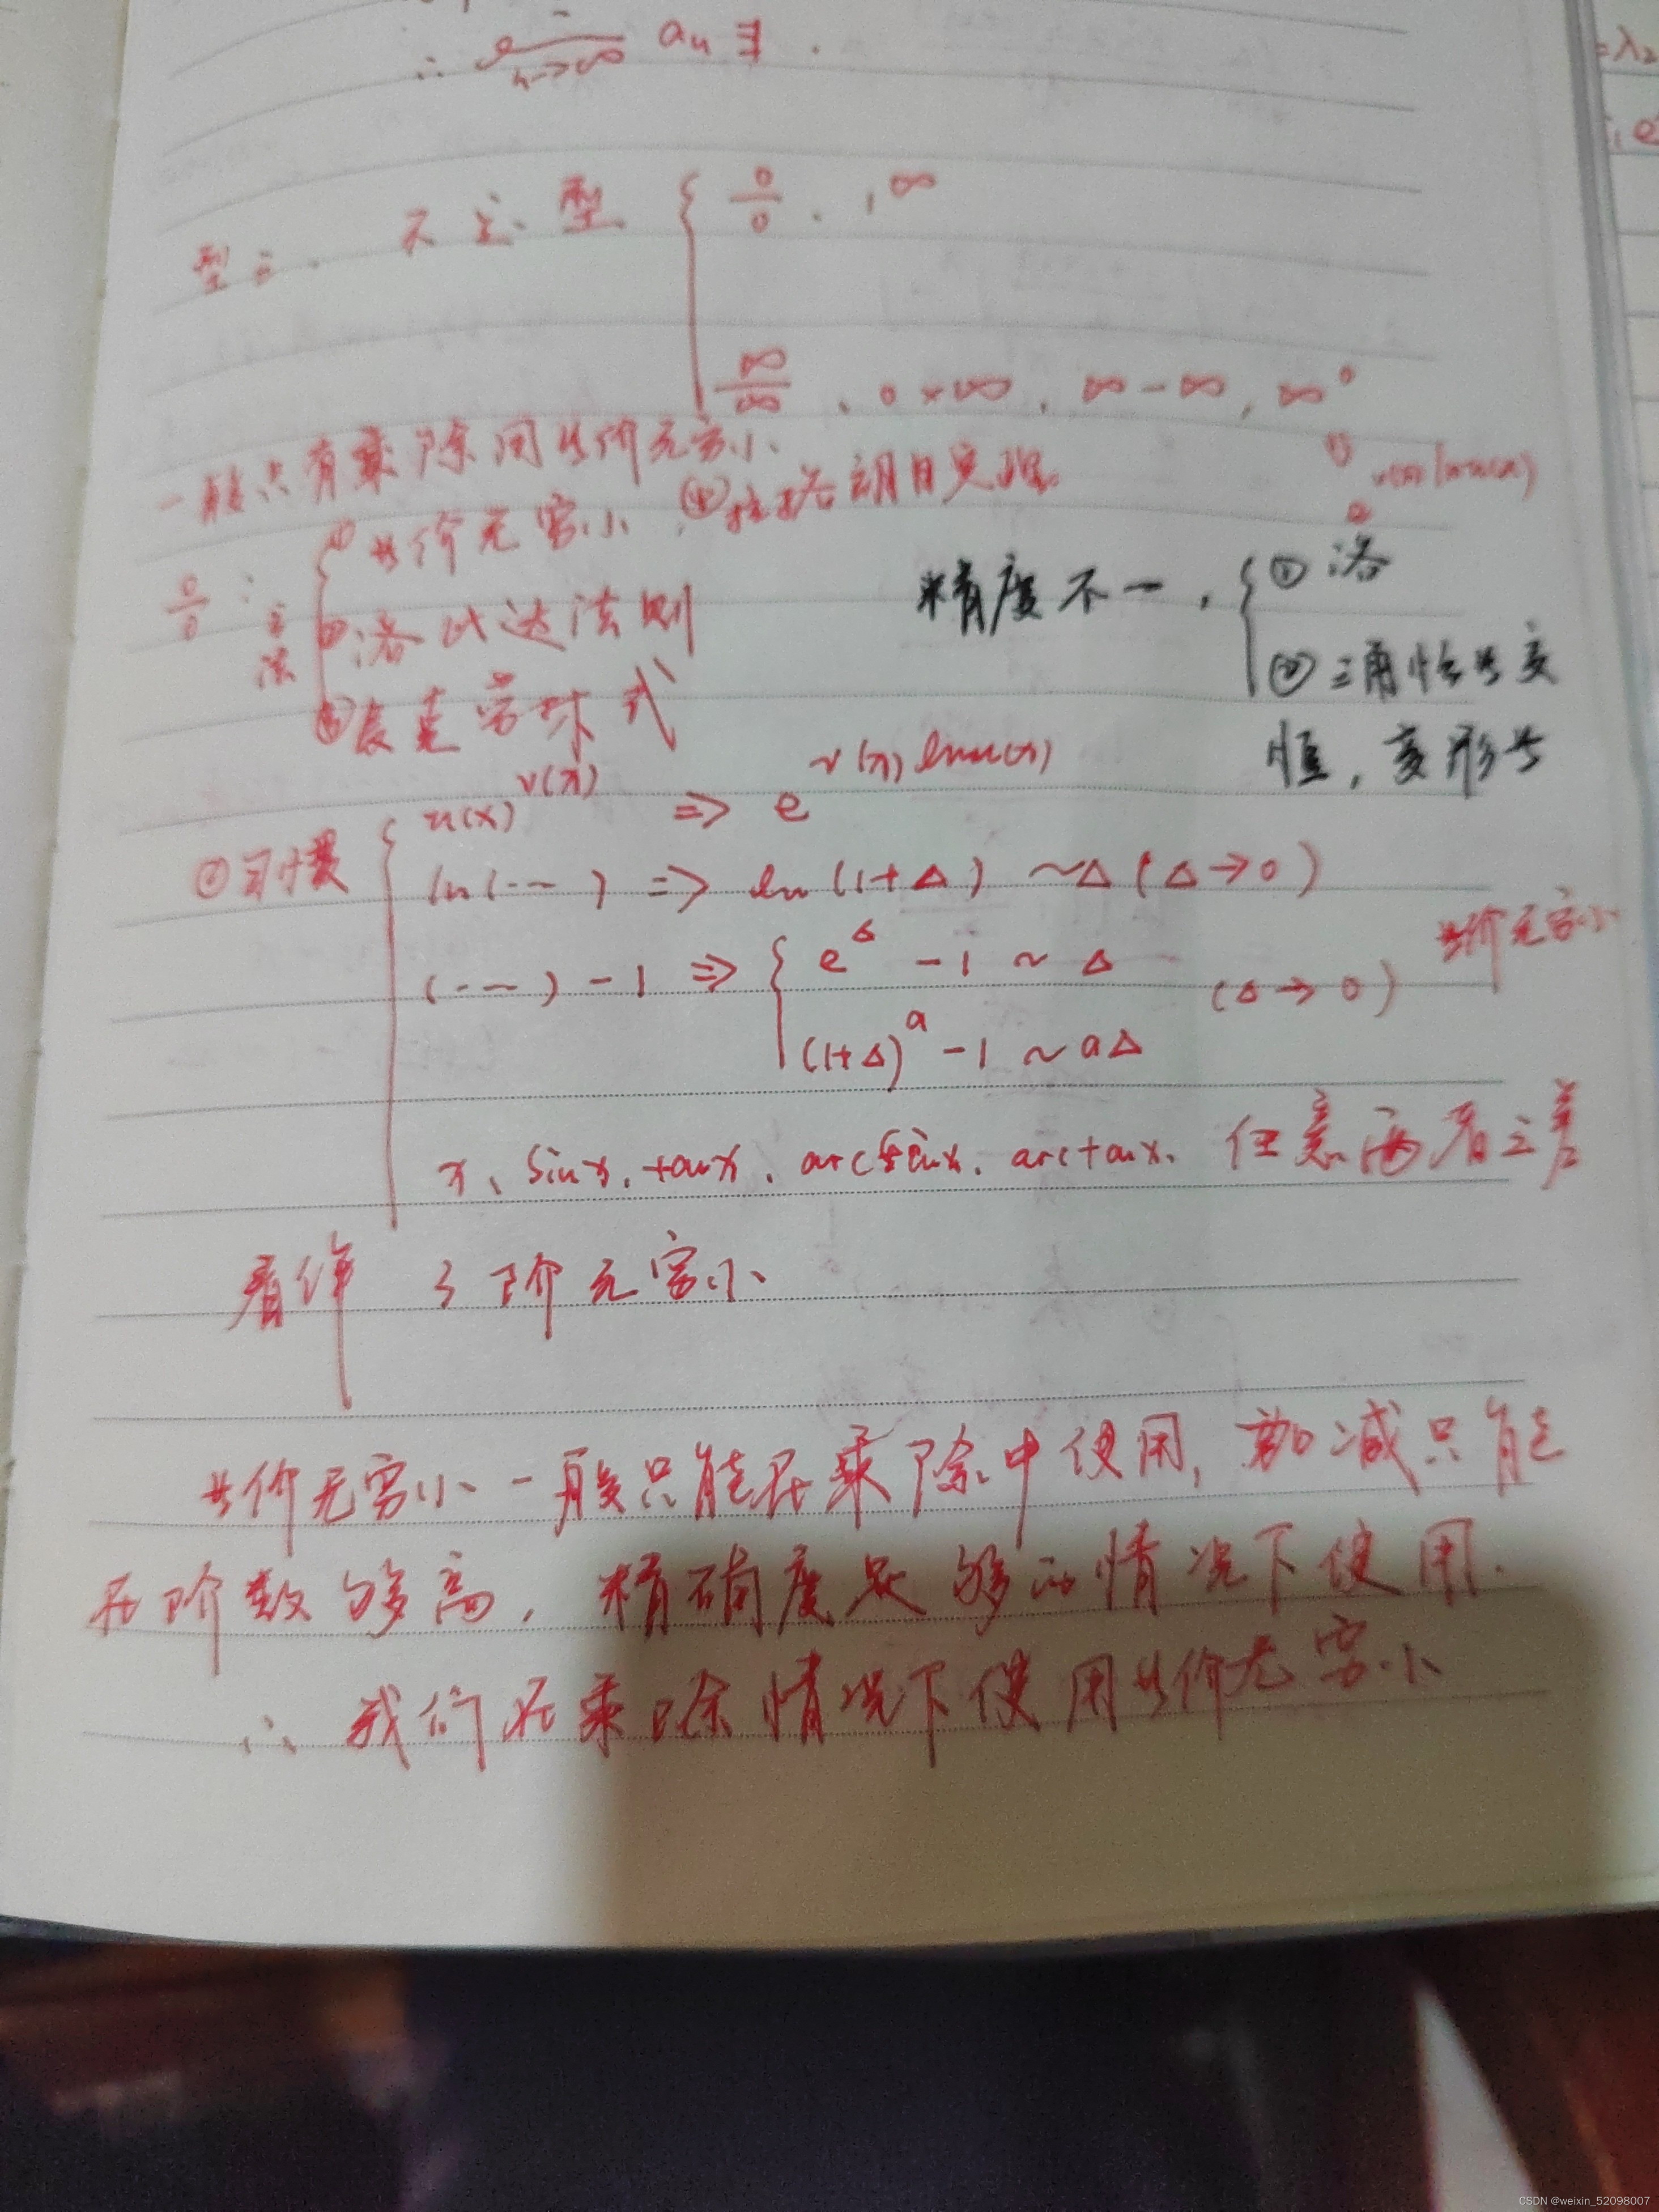 ∴ lim n→∞ an ∃.
型二. 不定型 { 0/0 . 1^∞
∞/∞ . 0×∞ . ∞-∞, ∞^0
一般只有乘除用等价无穷小
⇓
e^{v(x)lnu(x)}
0/0 : 方法 { ① 等价无穷小. ④拉格朗日定理
② 洛必达法则
③ 麦克劳林公式
精度不一, { ① 洛
② 三角恒等变
恒, 变形等
①习惯 { u(x)^{v(x)} => e^{v(x)lnu(x)}
ln(…) => ln(1+Δ) ~Δ (Δ→0)
(…)-1 => { e^Δ -1 ~ Δ
(1+Δ)^a -1 ~ aΔ (Δ→0) 等价无穷小
x、sinx, tanx, arcsinx, arctanx, 任意两者之差
看作 3阶无穷小
等价无穷小一般只能在乘除中使用, 加减只能
在阶数够高, 精确度足够的情况下使用.
∴ 我们在乘除情况下使用等价无穷小
=λ2
CSDN @weixin_52098007